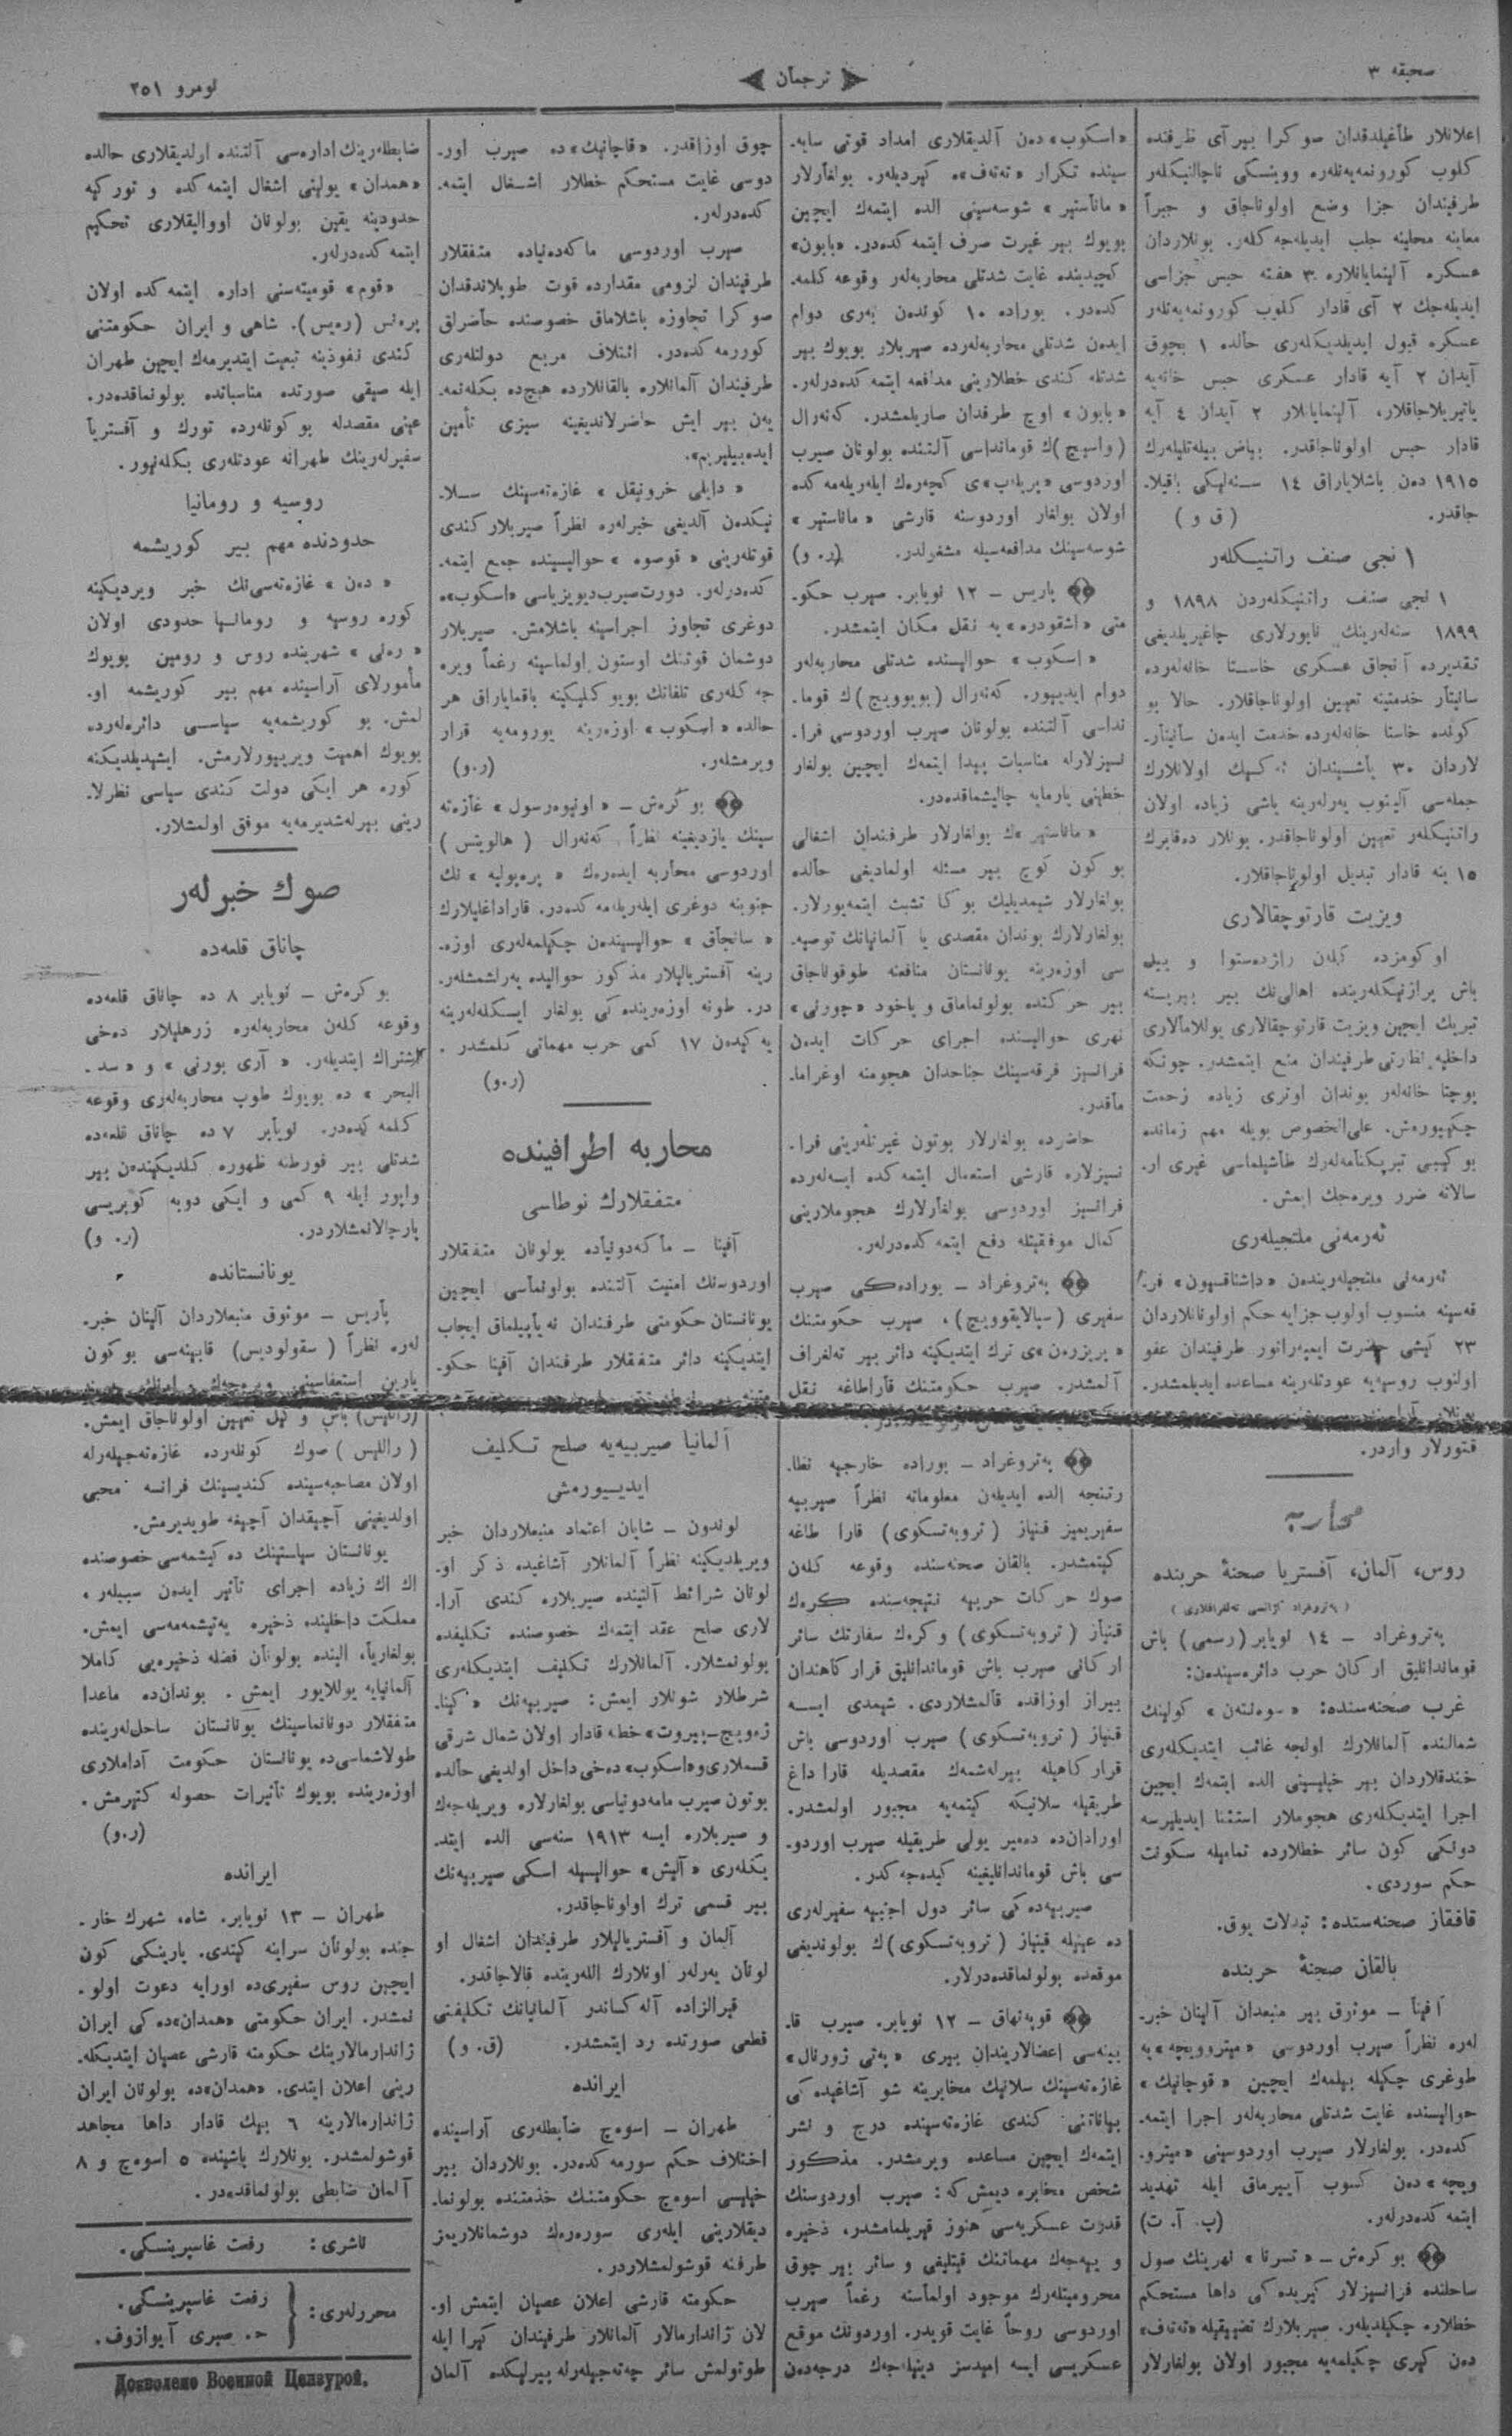 صحیفه ۳
ترجمان
نومرو ۲۵۱
اعلانلار طاغیلدقدن صوکرا بیر آی ظرفنده
کلوب کورونمه‌یه‌نلره ووینسکی ناچالنیکلەر
طرفیندان جزا وضع اولوناجاق و جبراً
معاینه محلینه جلب ایدیله‌جه‌کلەر. بونلاردان
عسکره آلینمایانلاره ۳ هفته حبس جزاسی
ایدیله‌جك ۲ آی قادار کلوب کورونمه‌یه‌نلەر
عسکره قبول ایدیلدیکلەری حالده ۱ بچوق
آیدان ۲ آیه قادار عسکری حبس خانه‌یه
یاتیریلاجاقلار، آلینمایانلار ۲ آیدان ٤ آیه
قادار حبس اولوناجاقدر. بیاض بیله‌تلیلەرك
۱۹۱۵ دەن باشلایاراق ۱٤ سنه‌لیکی باقیلا-
جاقدر. (ق و)
۱ نجی صنف راتنیکلەر
۱ نجی صنف راتنیکلەردن ۱۸۹۸ و
۱۸۹۹ سنه‌لەرینك نابورلاری چاغیریلدیغی
تقدیرده آنجاق عسکری خاستا خانه‌لەرده
سانیتار خدمتینه تعیین اولوناجاقلار. حالا بو
کونده خاستا خانه‌لەرده خدمت ایدەن سانیتار-
لاردان ۳۰ یاشیندان اەکسیك اولانلارك
جمله‌سی آلینوب یەرلەرینه یاشی زیاده اولان
راتنیکلەر تعیین اولوناجاقدر. بونلار دەقابرك
۱۵ ینه قادار تبدیل اولوناجاقلار.
ویزیت قارتوچقالاری
اوکومزده کلەن راژدەستوا و ییڭی
باش پرازنیکلەرینده اهالی‌نك بیر بیرینه
تبریك ایچین ویزیت قارتوچقالاری یوللامالاری
داخلیه نظارتی طرفیندان منع ایتمشدر. چونکه
پوچتا خانه‌لەر بوندان اوتری زیاده زحمت
چکییورەش. علی‌الخصوص بویله مهم زمانده
بو کیبی تبریکنامه‌لەرك طاشیلماسی غیری ار-
سالاته ضرر ویرەجك ایمش.
ئەرمەنی ملتجیلەری
ئەرمەنی ملتجیلەریندەن «داشناقسیون» فر-
قه‌سینه منسوب اولوب جزایه حکم اولونانلاردان
۲۳ کیشی حضرت ایمپەراتور طرفیندان عفو
اولنوب روسیه‌یه عودتلەرینه مساعده ایدیلمشدر.
قتورلار واردر.
محاربه
روس، آلمان، آفستریا صحنهٔ حربنده
(پەتروغراد آژانسی تەلغرافلاری)
پەتروغراد – ۱٤ نویابر (رسمی) باش
قوماندانلیق ارکان حرب دائرەسیندەن:
غرب صحنه‌سنده: «سوەنتەن» کولینك
شمالنده آلمانلارك اولجه غائب ایتدیکلەری
خندقلاردان بیر خیلیسینی الده ایتمەك ایچین
اجرا ایتدیکلەری هجوملار استثنا ایدیلیرسه
دونکی کون سائر خطلارده تمامیله سکونت
حکم سوردی.
قافقاز صحنه‌سنده: تبدلات یوق.
بالقان صحنهٔ حربنده
آفینا – موثوق بیر منبعدان آلینان خبر-
لەره نظراً صیرب اوردوسی «میتروویچه»یه
طوغری چکیله بیلمەك ایچین «قوچانیك»
حوالیسنده غایت شدتلی محاربه‌لەر اجرا ایتمه-
کدەدر. بولغارلار صیرب اوردوسینی «میترو-
ویچه» دەن کسوب آییرماق ایله تهدید
ایتمه کدەدرلەر. (پ. آ. ت)
بوکرەش – «تسرنا» نهرینك صول
ساحلنده فرانسیزلار کیریده‌کی داها مستحکم
خطلاره چکیلدیلەر. صیربلارك تضییقیله «تەتەف»
دەن کیری چکیلمەیه مجبور اولان بولغارلار
«اسکوب» دەن آلدیقلاری امداد قوتی سایه-
سینده تکرار «تەتەف»ه کیردیلەر. بولغارلار
«ماناستیر» شوسه‌سینی الده ایتمەك ایچین
بویوك بیر غیرت صرف ایتمه کدەدر. «بابون»
کچیدینده غایت شدتلی محاربه‌لەر وقوعه کلمه-
کدەدر. بوراده ۱۰ کوندەن بەری دوام
ایدەن شدتلی محاربه‌لەرده صیربلار بویوك بیر
شدتله کندی خطلارینی مدافعه ایتمه کدەدرلەر.
«بابون» اوچ طرفدان صاریلمشدر. کەنەرال
(واسیچ)ك قوماندا‌سی آلتنده بولونان صیرب
اوردوسی «پریلەپ»ی کچەرەك ایلەریلەمه کده
اولان بولغار اوردوسنه قارشی «ماناستیر»
شوسه‌سینك مدافعه‌سیله مشغولدر. (ر. و)
پاریس – ۱۲ نویابر. صیرب حکو-
متی «اشقودره» یه نقل مکان ایتمشدر.
«اسکوب» حوالیسنده شدتلی محاربه‌لەر
دوام ایدییور. کەنەرال (بویوویچ)ك قوما-
نداسی آلتنده بولونان صیرب اوردوسی فرا-
نسیزلارله مناسبات پیدا ایتمەك ایچین بولغار
خطینی یارمایه چالیشماقدەدر.
«ماناستیر»ك بولغارلار طرفندان اشغالی
بو کون کوچ بیر مسئله اولمادیغی حالده
بولغارلار شیمدیلیك بو کا تشبث ایتمەیورلار.
بولغارلارك بوندان مقصدی یا آلمانیانك توصیه-
سی اوزەرینه یونانستان منافعنه طوقوناجاق
بیر حرکتده بولونماماق و یاخود «چورنی»
نهری حوالیسنده اجرای حرکات ایدەن
فرانسیز فرقه‌سینك جناحدان هجومنه اوغراما-
ماقدر.
حاضرده بولغارلار بوتون غیرتلەرینی فرا-
نسیزلاره قارشی استعمال ایتمه کده ایسه‌لەرده
فرانسیز اوردوسی بولغارلارك هجوملارینی
کمال موفقیتله دفع ایتمه کدەدرلەر.
پەتروغراد – بوراده‌کی صیرب
سفیری (سپالایقوویچ)، صیرب حکومتنك
«پریزرەن»ی ترك ایتدیکینه دائر بیر تەلغراف
آلمشدر. صیرب حکومتنك قاراطاغه نقل
پەتروغراد – بوراده خارجیه نظا-
رتنجه الده ایدیلەن معلوماته نظراً صیربیه
سفیریمیز قنیاز (تروبه‌تسکوی) قارا طاغه
کیتمشدر. بالقان صحنه‌سنده وقوعه کلەن
صوك حرکات حربیه نتیجه‌سنده کرەك
قنیاز (تروبه‌تسکوی) و کرەك سفارتك سائر
ارکانی صیرب باش قوماندانلیق قرارکاهندان
بیراز اوزاقده قالمشلاردی. شیمدی ایسه
قنیاز (تروبه‌تسکوی) صیرب اوردوسی باش
قرارکاهیله بیرلەشمەك مقصدیله قارا داغ
طریقیله سلانیکه کیتمەیه مجبور اولمشدر.
اورادان‌ده دەمیر یولی طریقیله صیرب اوردو-
سی باش قوماندانلیغینه کیدەجه کدر.
صیربیه‌ده‌کی سائر دول اجنبیه سفیرلەری
ده عینیله قنیاز (تروبه‌تسکوی)ك بولوندیغی
موقعده بولونماقدەدرلار.
قوپەنهاق – ۱۲ نویابر. صیرب قا-
بینه‌سی اعضالاریندان بیری «پەتی ژورنال»
غازەته‌سینك سلانیك مخابرینه شو آشاغیده‌کی
بیاناتنی کندی غازەته‌سینده درج و نشر
ایتمەك ایچین مساعده ویرمشدر. مذکور
شخص مخابره دیمش که: صیرب اوردوسنك
قدرت عسکریه‌سی هنوز قیریلمامشدر، ذخیره
و ییەجەك مهماتنك قیتلیغی و سائر بیر چوق
محرومیتلەرك موجود اولماسنه رغماً صیرب
اوردوسی روحاً غایت قویدر. اوردونك موقع
عسکریسی ایسه امیدسز دینیله‌جەك درجه‌دەن
چوق اوزاقدر. «قاچانیك»ده صیرب اور-
دوسی غایت مستحکم خطلار اشغال ایتمه-
کدەدرلەر.
صیرب اوردوسی ماکەدەنیاده متفقلار
طرفیندان لزومی مقدارده قوت طوپلاندقدان
صوکرا تجاوزه باشلاماق خصوصنده حاضرلق
کوررمه کدەدر. ائتلاف مربع دولتلەری
طرفیندان آلمانلاره بالقانلارده هیچ‌ده بکله‌نمه-
یەن بیر ایش حاضرلاندیغینه سیزی تأمین
ایده‌بیلیریم».
«دایلی خرونیقل» غازەته‌سینك سلا-
نیکدەن آلدیغی خبرلەره نظراً صیربلار کندی
قوتلەرینی «قوصوه» حوالیسینده جمع ایتمه-
کدەدرلەر. دورت صیرب دیویزیاسی «اسکوب»ه
دوغری تجاوز اجراسینه باشلامش. صیربلار
دوشمان قوتنك اوستون اولماسینه رغماً ویره
جه کلەری تلفاتك بویوکلیکینه باقمایاراق هر
حالده «اسکوب» اوزەرینه یورومەیه قرار
ویرمشلەر. (ر.و)
بو کرەش – «اونیوەرسول» غازەته
سینك یازدیغینه نظراً کەنەرال (هالویتس)
اوردوسی محاربه ایدەرەك «پرەپولیه» نك
جنوبنه دوغری ایلەریلەمه کدەدر. قاراداغلیلارك
«سانجاق» حوالیسیندەن چکیلمەلەری اوزه-
رینه آفستریالیلار مذکور حوالیده یەرلشمشلەر-
در. طونه اوزەرینده‌کی بولغار ایسکله‌لەرینه
یه کیدەن ۱۷ کمی حرب مهماتی کلمشدر.
(ر.و)
محاربه اطرافینده
متفقلارك نوطاسی
آفینا – ماکەدونیاده بولونان متفقلار
اوردوسنك امنیت آلتنده بولونماسی ایچین
یونانستان حکومتی طرفندان نه یاپیلماق ایجاب
ایتدیکینه دائر متفقلار طرفندان آفینا حکو-
آلمانیا صیربیه‌یه صلح تکلیف
ایدییورمشی
لوندون – شایان اعتماد منبعلاردان خبر
ویریلدیکینه نظراً آلمانلار آشاغیده ذکر او-
لونان شرائط آلتینده صیربلاره کندی آرا-
لاری صلح عقد ایتمەك خصوصنده تکلیفده
بولونمشلار. آلمانلارك تکلیف ایتدیکلەری
شرطلار شونلار ایمش: صیربیه‌نك «کینا-
ژەویچ-پیروت» خطه قادار اولان شمال شرقی
قسملاری و «اسکوب» ده‌خی داخل اولدیغی حالده
بوتون صیرب مامه‌دونیاسی بولغارلاره ویریله‌جەك
و صیربلاره ایسه ۱۹۱۳ سنه‌سی الده ایتد-
یکلەری «آلیش» حوالیسیله اسکی صیربیه‌نك
بیر قسمی ترك اولوناجاقدر.
آلمان و آفستریالیلار طرفیندان اشغال او
لونان یەرلەر اونلارك اللەرینده قالاجاقدر.
قیرالزاده آله‌کساندر آلمانیانك تکلیفنی
قطعی صورتده رد ایتمشدر. (ق. و)
ایرانده
طهران – اسوەچ ضابطلەری آراسینده
اختلاف حکم سورمه کدەدر. بونلاردان بیر
خیلیسی اسوەچ حکومتنك خدمتنده بولونما-
دیقلارینی ایلەری سورەرەك دوشمانلاریمز
طرفنه قوشولمشلاردر.
حکومته قارشی اعلان عصیان ایتمش او-
لان ژاندارمالار آلمانلار طرفیندان کیرا ایله
طوتولمش سائر چەته‌جیلەرله بیرلیکده آلمان
ضابطلەرینك اداره‌سی آلتنده اولدیقلاری حالده
«همدان» یولینی اشغال ایتمه کده و تورکیه
حدودینه یقین بولونان اووالیقلاری تحکیم
ایتمه کدەدرلەر.
«قوم» قومیته‌سنی اداره ایتمه کده اولان
پرەنس (رەیس)، شاهی و ایران حکومتنی
کندی نفوذینه تبعیت ایتدیرمەك ایچین طهران
ایله صیقی صورتده مناسباتده بولونماقدەدر.
عینی مقصدله بو کونلەرده تورك و آفستریا
سفیرلەرینك طهرانه عودتلەری بکله‌نیور.
روسیه و رومانیا
حدودنده مهم بیر کوریشمه
«دەن» غازەته‌سی‌نك خبر ویردیکینه
کوره روسیه و رومانیا حدودی اولان
«رەنی» شهرینده روس و رومین بویوك
مأمورلای آراسینده مهم بیر کوریشمه او-
لمش. بو کوریشمەیه سیاسی دائرەلەرده
بویوك اهمیت ویرییورلارمش. ایشیدیلدیکنه
کوره هر ایکی دولت کندی سیاسی نظرلا-
رینی بیرلەشدیرمەیه موفق اولمشلار.
صوك خبرلەر
چاناق قلعه‌ده
بوکرەش – نویابر ۸ ده چاناق قلعه‌ده
وقوعه کلەن محاربه‌لەره زرهلیلار دەخی
اشتراك ایتدیلەر. «آری بورنی» و «سد-
البحر» ده بویوك طوپ محاربه‌لەری وقوعه
کلمه کدەدر. نویابر ۷ ده چاناق قلعه‌ده
شدتلی بیر فورطنه ظهوره کلدیکیندەن بیر
واپور ایله ۹ کمی و ایکی دوبه کوپریسی
پارچالانمشلاردر. (ر. و)
یونانستانده
پاریس – موثوق منبعلاردان آلینان خبر-
لەره نظراً (سقولودیس) قابینه‌سی بو کون
یارین استعفاسینی
(راللیس) باش و کیل تعیین اولوناجاق ایمش.
(راللیس) صوك کونلەرده غازەته‌جیلەرله
اولان مصاحبه‌سینده کندیسینك فرانسه محبی
اولدیغینی آچیقدان آچیغه طویدیرمش.
یونانستان سیاستینك ده‌کیشمه‌سی خصوصنده
اك اك زیاده اجرای تأثیر ایدەن سببلەر،
مملکت داخلینده ذخیره یەتیشمه‌مه‌سی ایمش.
بولغاریا، الینده بولونان فضله ذخیره‌یی کاملا
آلمانیایه یوللایور ایمش. بوندان‌ده ماعدا
متفقلار دونانماسینك یونانستان ساحل‌لەرینده
طولاشماسی‌ده یونانستان حکومت آداملاری
اوزەرینده بویوك تأثیرات حصوله کتیرمش.
(ر.و)
ایرانده
طهران – ۱۳ نویابر. شاه، شهرك خار-
جنده بولونان سراینه کیتدی. یارینکی کون
ایچین روس سفیری‌ده اورایه دعوت اولو-
نمشدر. ایران حکومتی «همدان»ده‌کی ایران
ژاندارمالارینك حکومته قارشی عصیان ایتدیکله-
رینی اعلان ایتدی. «همدان»ده بولونان ایران
ژاندارمالارینه ٦ بیك قادار داها مجاهد
قوشولمشدر. بونلارك باشینده ۵ اسوەچ و ۸
آلمان ضابطی بولونماقدەدر.
ناشری: رفعت غاسپرینسکی.
محررلەری: رفعت غاسپرینسکی.
ح. صبری آیوازوف.
Дозволено Военной Цензурой.